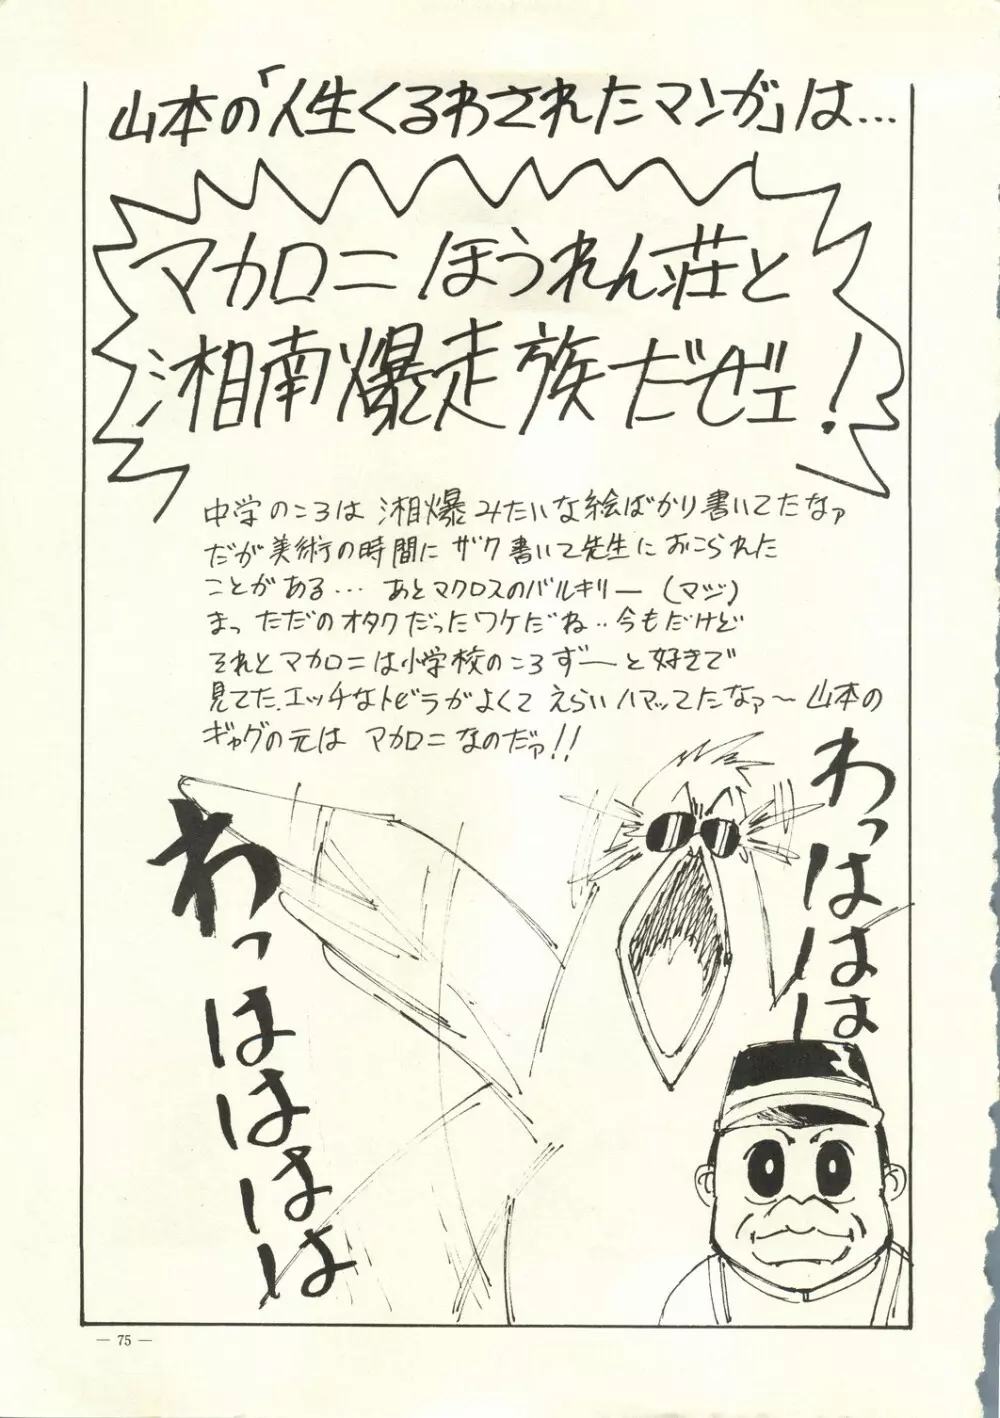 山本の「人生くるわされたマンガ」は…
マカロニほうれん荘と
湘南爆走族だぜェ!
中学のころは 湘爆みたいな絵ばかり書いてたなァ
だが美術の時間に ザク書いて先生におこられた
ことがある… あとマクロスのバルキリー (マジ)
まっ ただのオタクだったワケだね‥今もだけど
それとマカロニは小学校のころずーーと好きで
見てた.エッチなトビラがよくて えらいハマッてたなァ〜 山本の
ギャグの元は マカロニなのだァ!!
わっははは
わっはははは
— 75 —